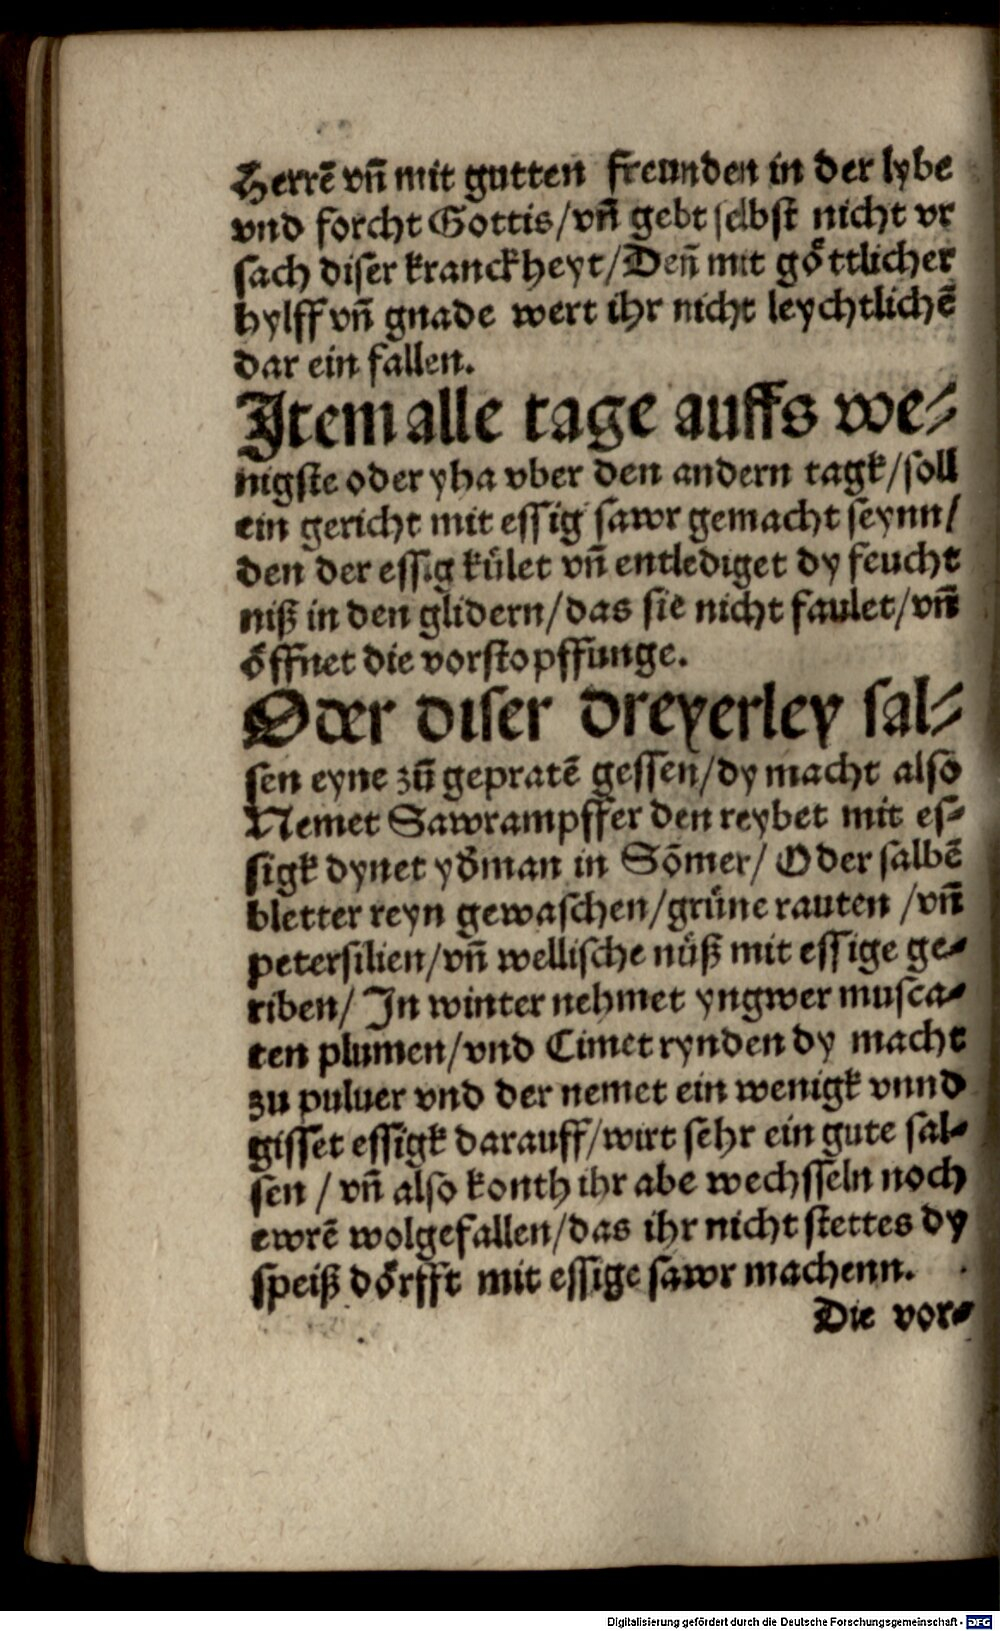 Herrē vn̄ mit gutten freunden in der lybe
vnd forcht Gottis/vn̄ gebt selbst nicht vr
sach diser kranckheyt/Den̄ mit gǒttlicher
hylff vn̄ gnade wert ihr nicht leychtlichē
dar ein fallen.
Item alle tage auffs we⸗
nigste oder yha vber den andern tagk/soll
ein gericht mit essig sawr gemacht seynn/
den der essig kůlet vn̄ entlediget dy feucht
niß in den glidern/das sie nicht faulet/vn̄
ǒffnet die vorstopffunge.
Oder diser dreyerley sal⸗
sen eyne zů gepratē gessen/dy macht also
Nemet Sawrampffer den reybet mit es⸗
sigk dynet yderman in Sōmer/ Oder salbē
bletter reyn gewaschen/grůne rauten /vn̄
petersilien/vn̄ wellische nůß mit essige ge⸗
riben/ In winter nehmet yngwer musca⸗
ten plumen/vnd Cimet rynden dy macht
zu puluer vnd der nemet ein wenigk vnnd
gisset essigk darauff/wirt sehr ein gute sal⸗
sen / vn̄ also konth ihr abe wechsseln noch
ewrē wolgefallen/das ihr nicht stettes dy
speiß dǒrfft mit essige sawr machenn.
Die vor⸗
Digitalisierung gefördert durch die Deutsche Forschungsgemeinschaft - DFG